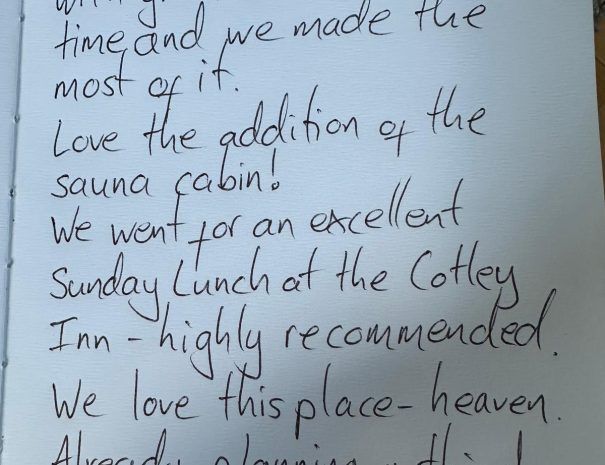 time, and we made the
most of it.
Love the addition of the
sauna cabin!
We went for an excellent
Sunday Lunch at the Cotley
Inn - highly recommended.
We love this place - heaven.
Already planning